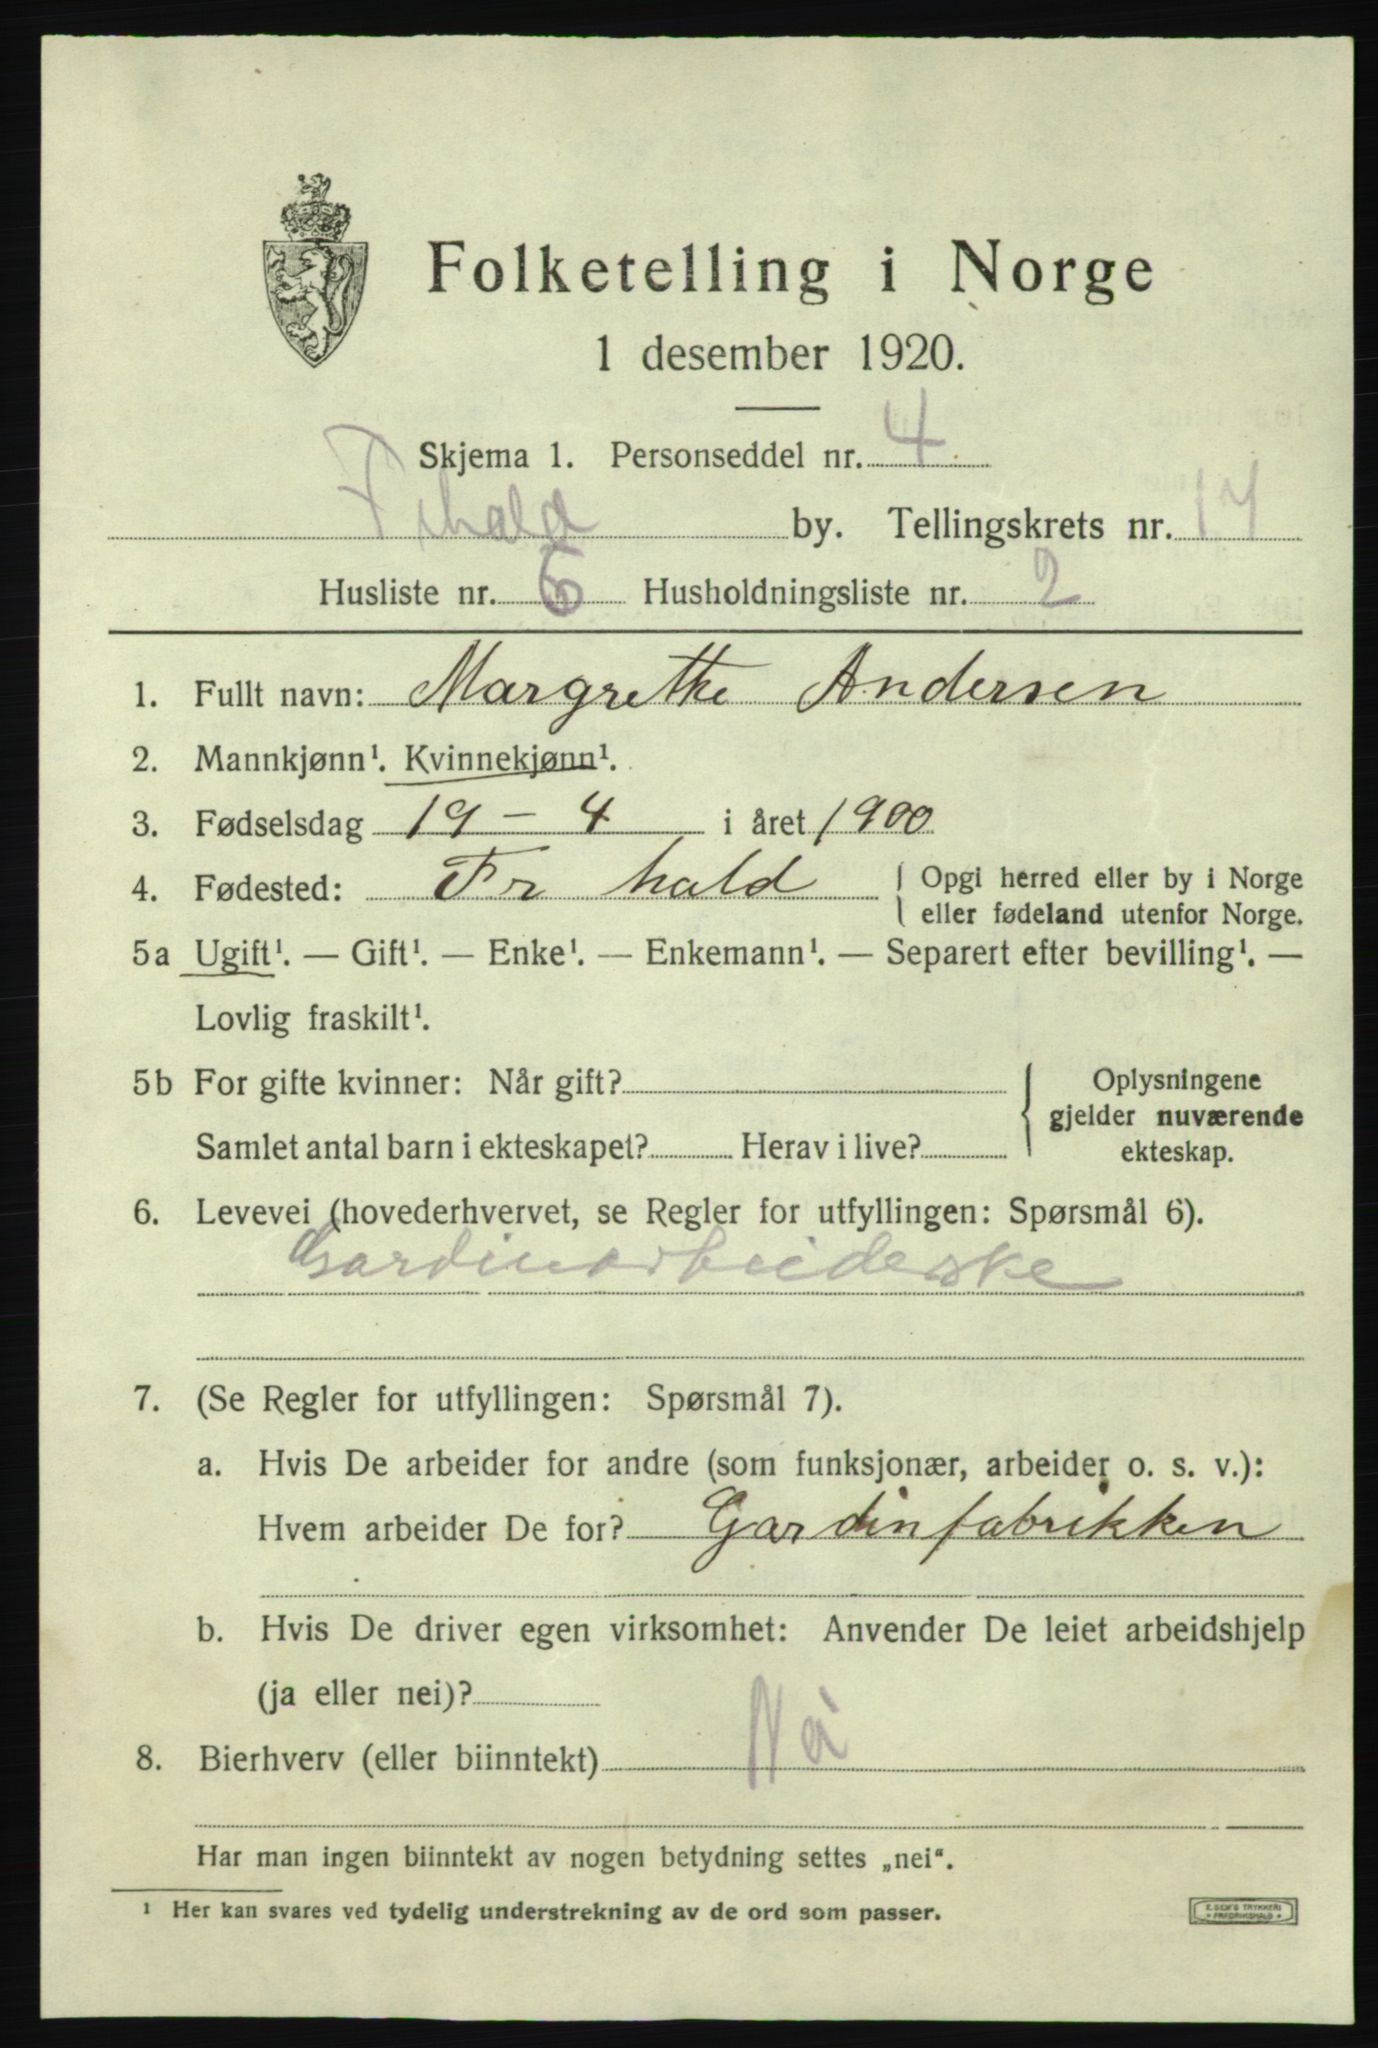 Folketelling i Norge
1 desember 1920.
Skjema 1. Personseddel nr. 4
Fr.hald by. Tellingskrets nr. 17
Husliste nr. 6 Husholdningsliste nr. 2
1. Fullt navn: Margrethe Andersen
2. Mannkjønn¹. Kvinnekjønn¹.
3. Fødselsdag 19 – 4 i året 1900
4. Fødested: Fr hald { Opgi herred eller by i Norge
eller fødeland utenfor Norge.
5a Ugift¹. — Gift¹. — Enke¹. — Enkemann¹. — Separert efter bevilling¹. —
Lovlig fraskilt¹.
5b For gifte kvinner: Når gift? Oplysningene
gjelder nuværende
Samlet antal barn i ekteskapet? Herav i live? ekteskap.
6. Levevei (hovederhvervet, se Regler for utfyllingen: Spørsmål 6).
Gardinarbeiderske
7. (Se Regler for utfyllingen: Spørsmål 7).
a. Hvis De arbeider for andre (som funksjonær, arbeider o. s. v.):
Hvem arbeider De for? Gardinfabrikken
b. Hvis De driver egen virksomhet: Anvender De leiet arbeidshjelp
(ja eller nei)?
8. Bierhverv (eller biinntekt)
Har man ingen biinntekt av nogen betydning settes „nei“.
¹ Her kan svares ved tydelig understrekning av de ord som passer.
E. SEM'S TRYKKERI
FREDRIKSHALD